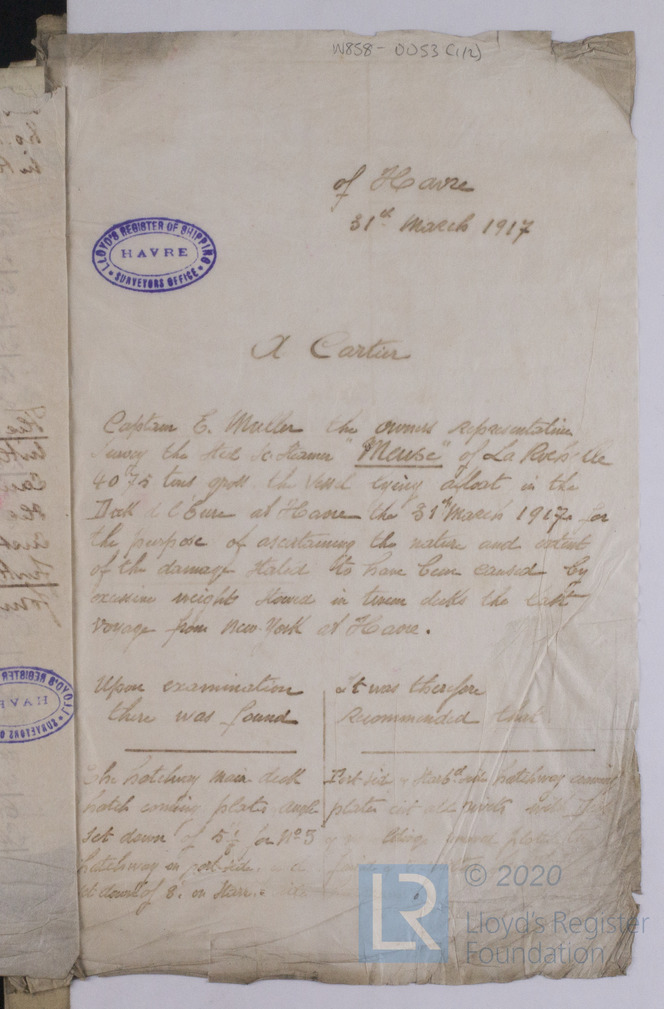 W858-0053 (1/2)
of Havre
31st March 1917
LLOYD'S REGISTER OF SHIPPING
HAVRE
SURVEYORS OFFICE
A Cartier
Captain E. Muller the owners representative
survey the Sted Sc. Steamer "Meuse" of La Rochelle
4075 tons gross the vessel lying afloat in the
Dock de l'Eure at Havre the 31st March 1917 for
the purpose of ascertaining the nature and extent
of the damage stated to have been caused by
excessive weight stowed in tween decks the last
voyage from New-York at Havre.
Upon examination
there was found
it was therefore
recommended that
The hatchway main deck
hatch coming plate
set down of 5 1/2 for No 3
hatchway on port side,
set down of 8. on Star
Port side & Starbd side hatchway coming
plates cut all rivets
© 2020
LR
Lloyd's Register
Foundation